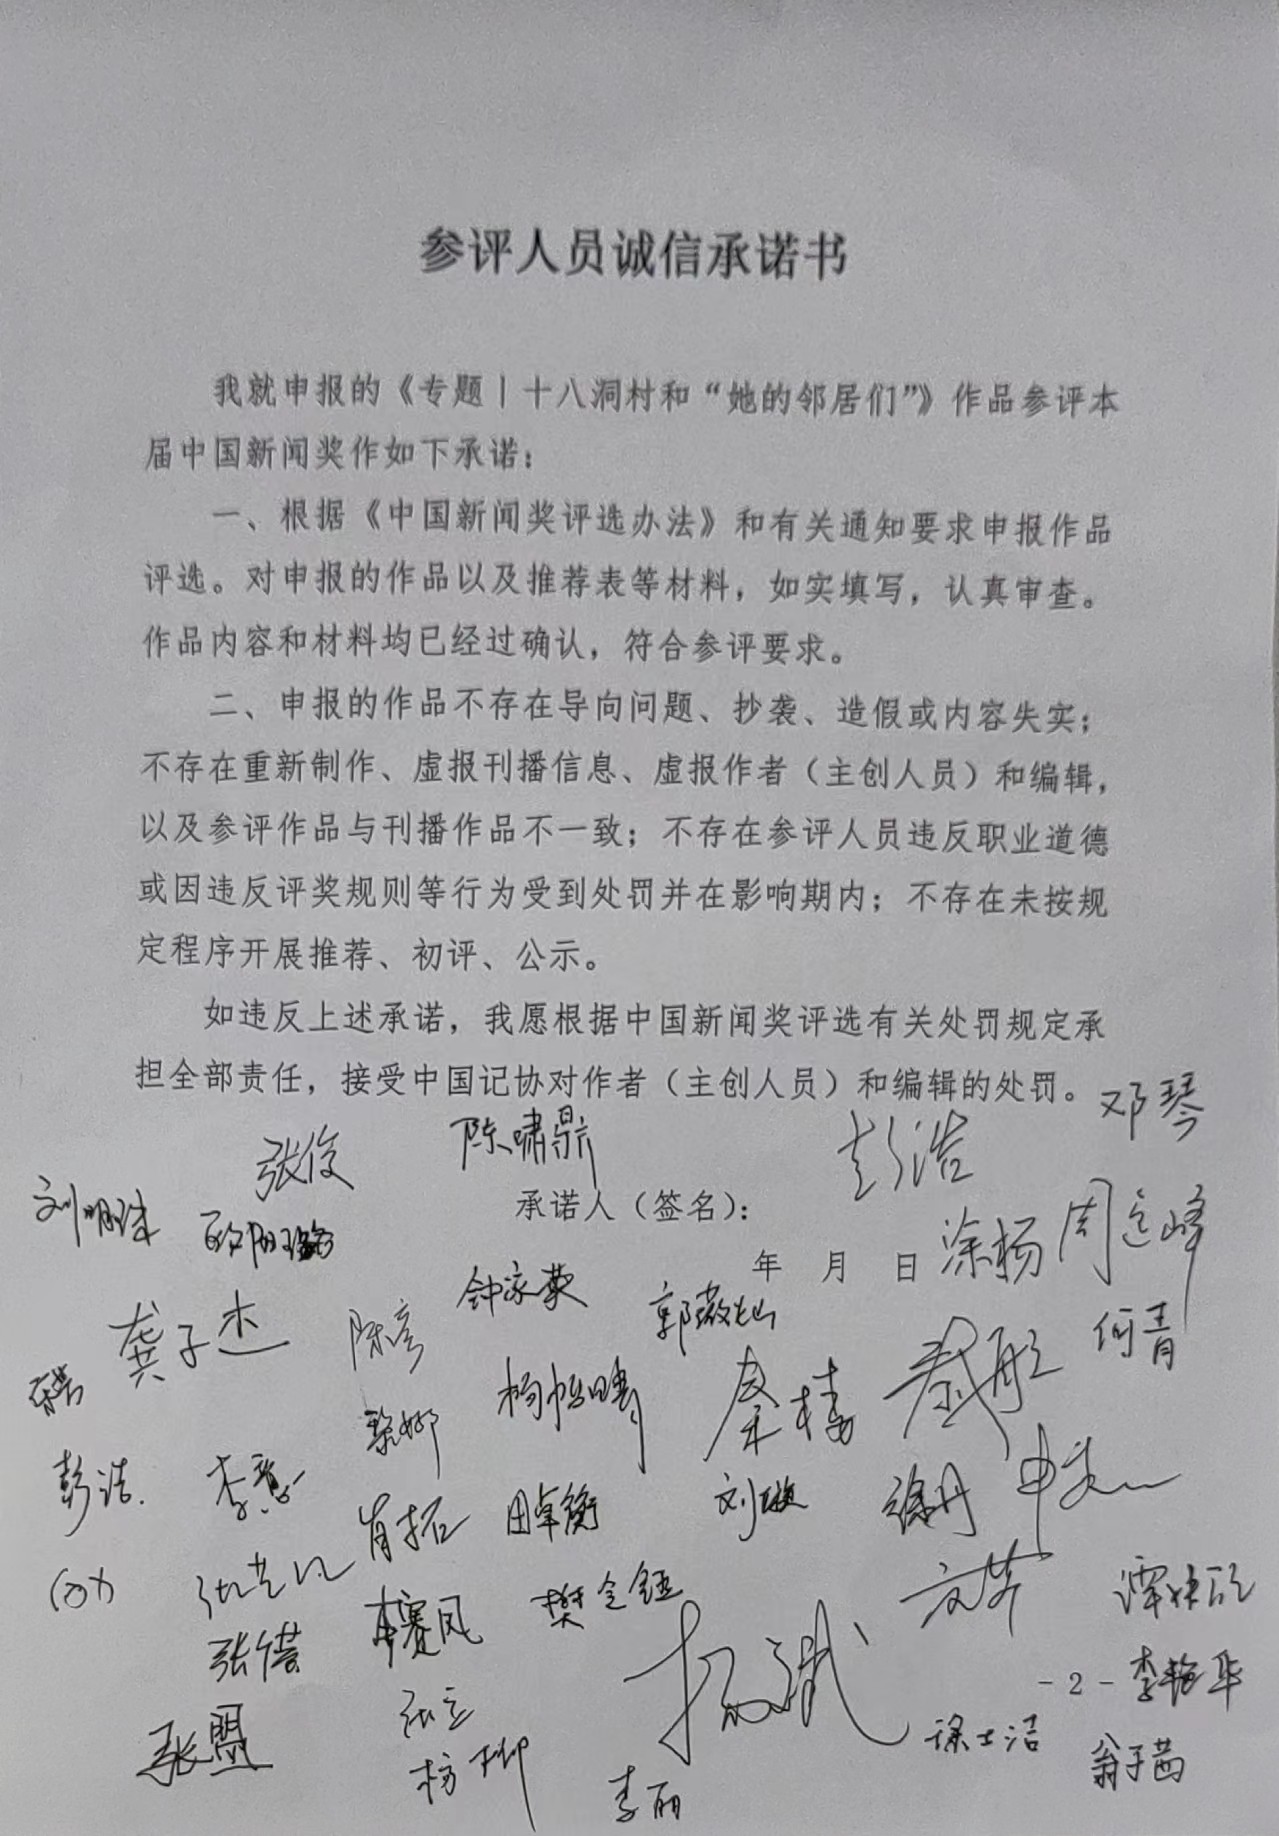 参评人员诚信承诺书
我就申报的《专题|十八洞村和“她的邻居们”》作品参评本
届中国新闻奖作如下承诺：
一、根据《中国新闻奖评选办法》和有关通知要求申报作品
评选。对申报的作品以及推荐表等材料，如实填写，认真审查。
作品内容和材料均已经过确认，符合参评要求。
二、申报的作品不存在导向问题、抄袭、造假或内容失实；
不存在重新制作、虚报刊播信息、虚报作者（主创人员）和编辑，
以及参评作品与刊播作品不一致；不存在参评人员违反职业道德
或因违反评奖规则等行为受到处罚并在影响期内；不存在未按规
定程序开展推荐、初评、公示。
如违反上述承诺，我愿根据中国新闻奖评选有关处罚规定承
担全部责任，接受中国记协对作者（主创人员）和编辑的处罚。
邓琴
张俊
陈啸鼎
彭浩
承诺人（签名）：
欧阳璐
年 月 日
涂杨
钟家英
龚子杰
陈彦
何青
黎娜
彭浩
肖拓
田卓衡
刘璇
徐丹
张倩
樊令钰
-2-
李艳华
张盟
张立
杨柳
李丽
徐士洁
翁子茜